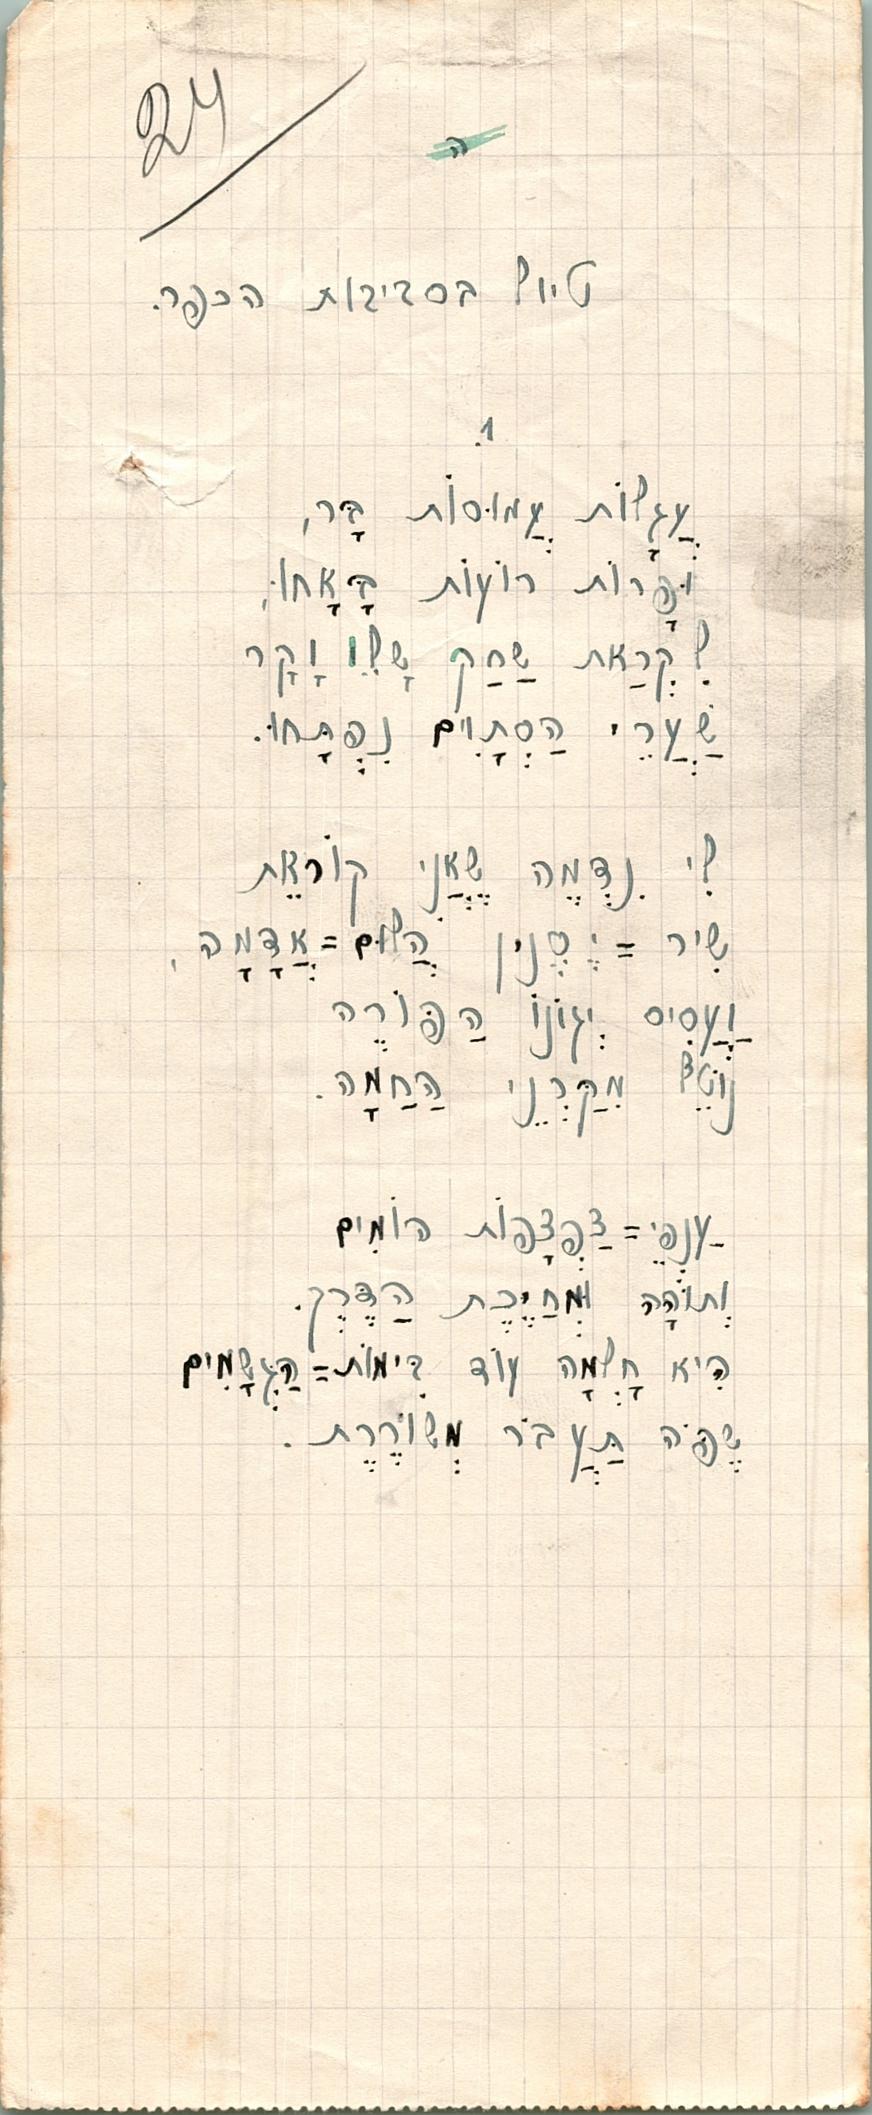 24
ה
טיול בסביבות הכפר.
1.
עֲגָלוֹת עֲמוּסוֹת בָּר,
וּפָרוֹת רוֹעוֹת בָּאָחוּ,
לִקְרַאת שַׁחַק שָׁלֵו וָקָר
שַׁעֲרֵי הַסְתָוִים נִפְתָּחוּ.
לִי נִדְמֶה שֶׁאֲנִי קוֹרֵאת
שִׁיר = הֲלוֹם=אֲדָמָה,
וַעֲסִיס יְגוֹנוֹ הַפּוֹרֶה
נוֹטֵל מִקַּרְנֵי הַחַמָּה.
עַנְפֵי=צַפְצָפוֹת הוֹמִים
וְתוֹהָה וּמְחַיֶכֶת הַדֶּרֶךְ.
הִיא חָלְמָה עוֹד בִּימוֹת=הַגְּשָׁמִים
שֶׁפֹּה תַּעֲבֹר מְשׁוֹרֶרֶת.